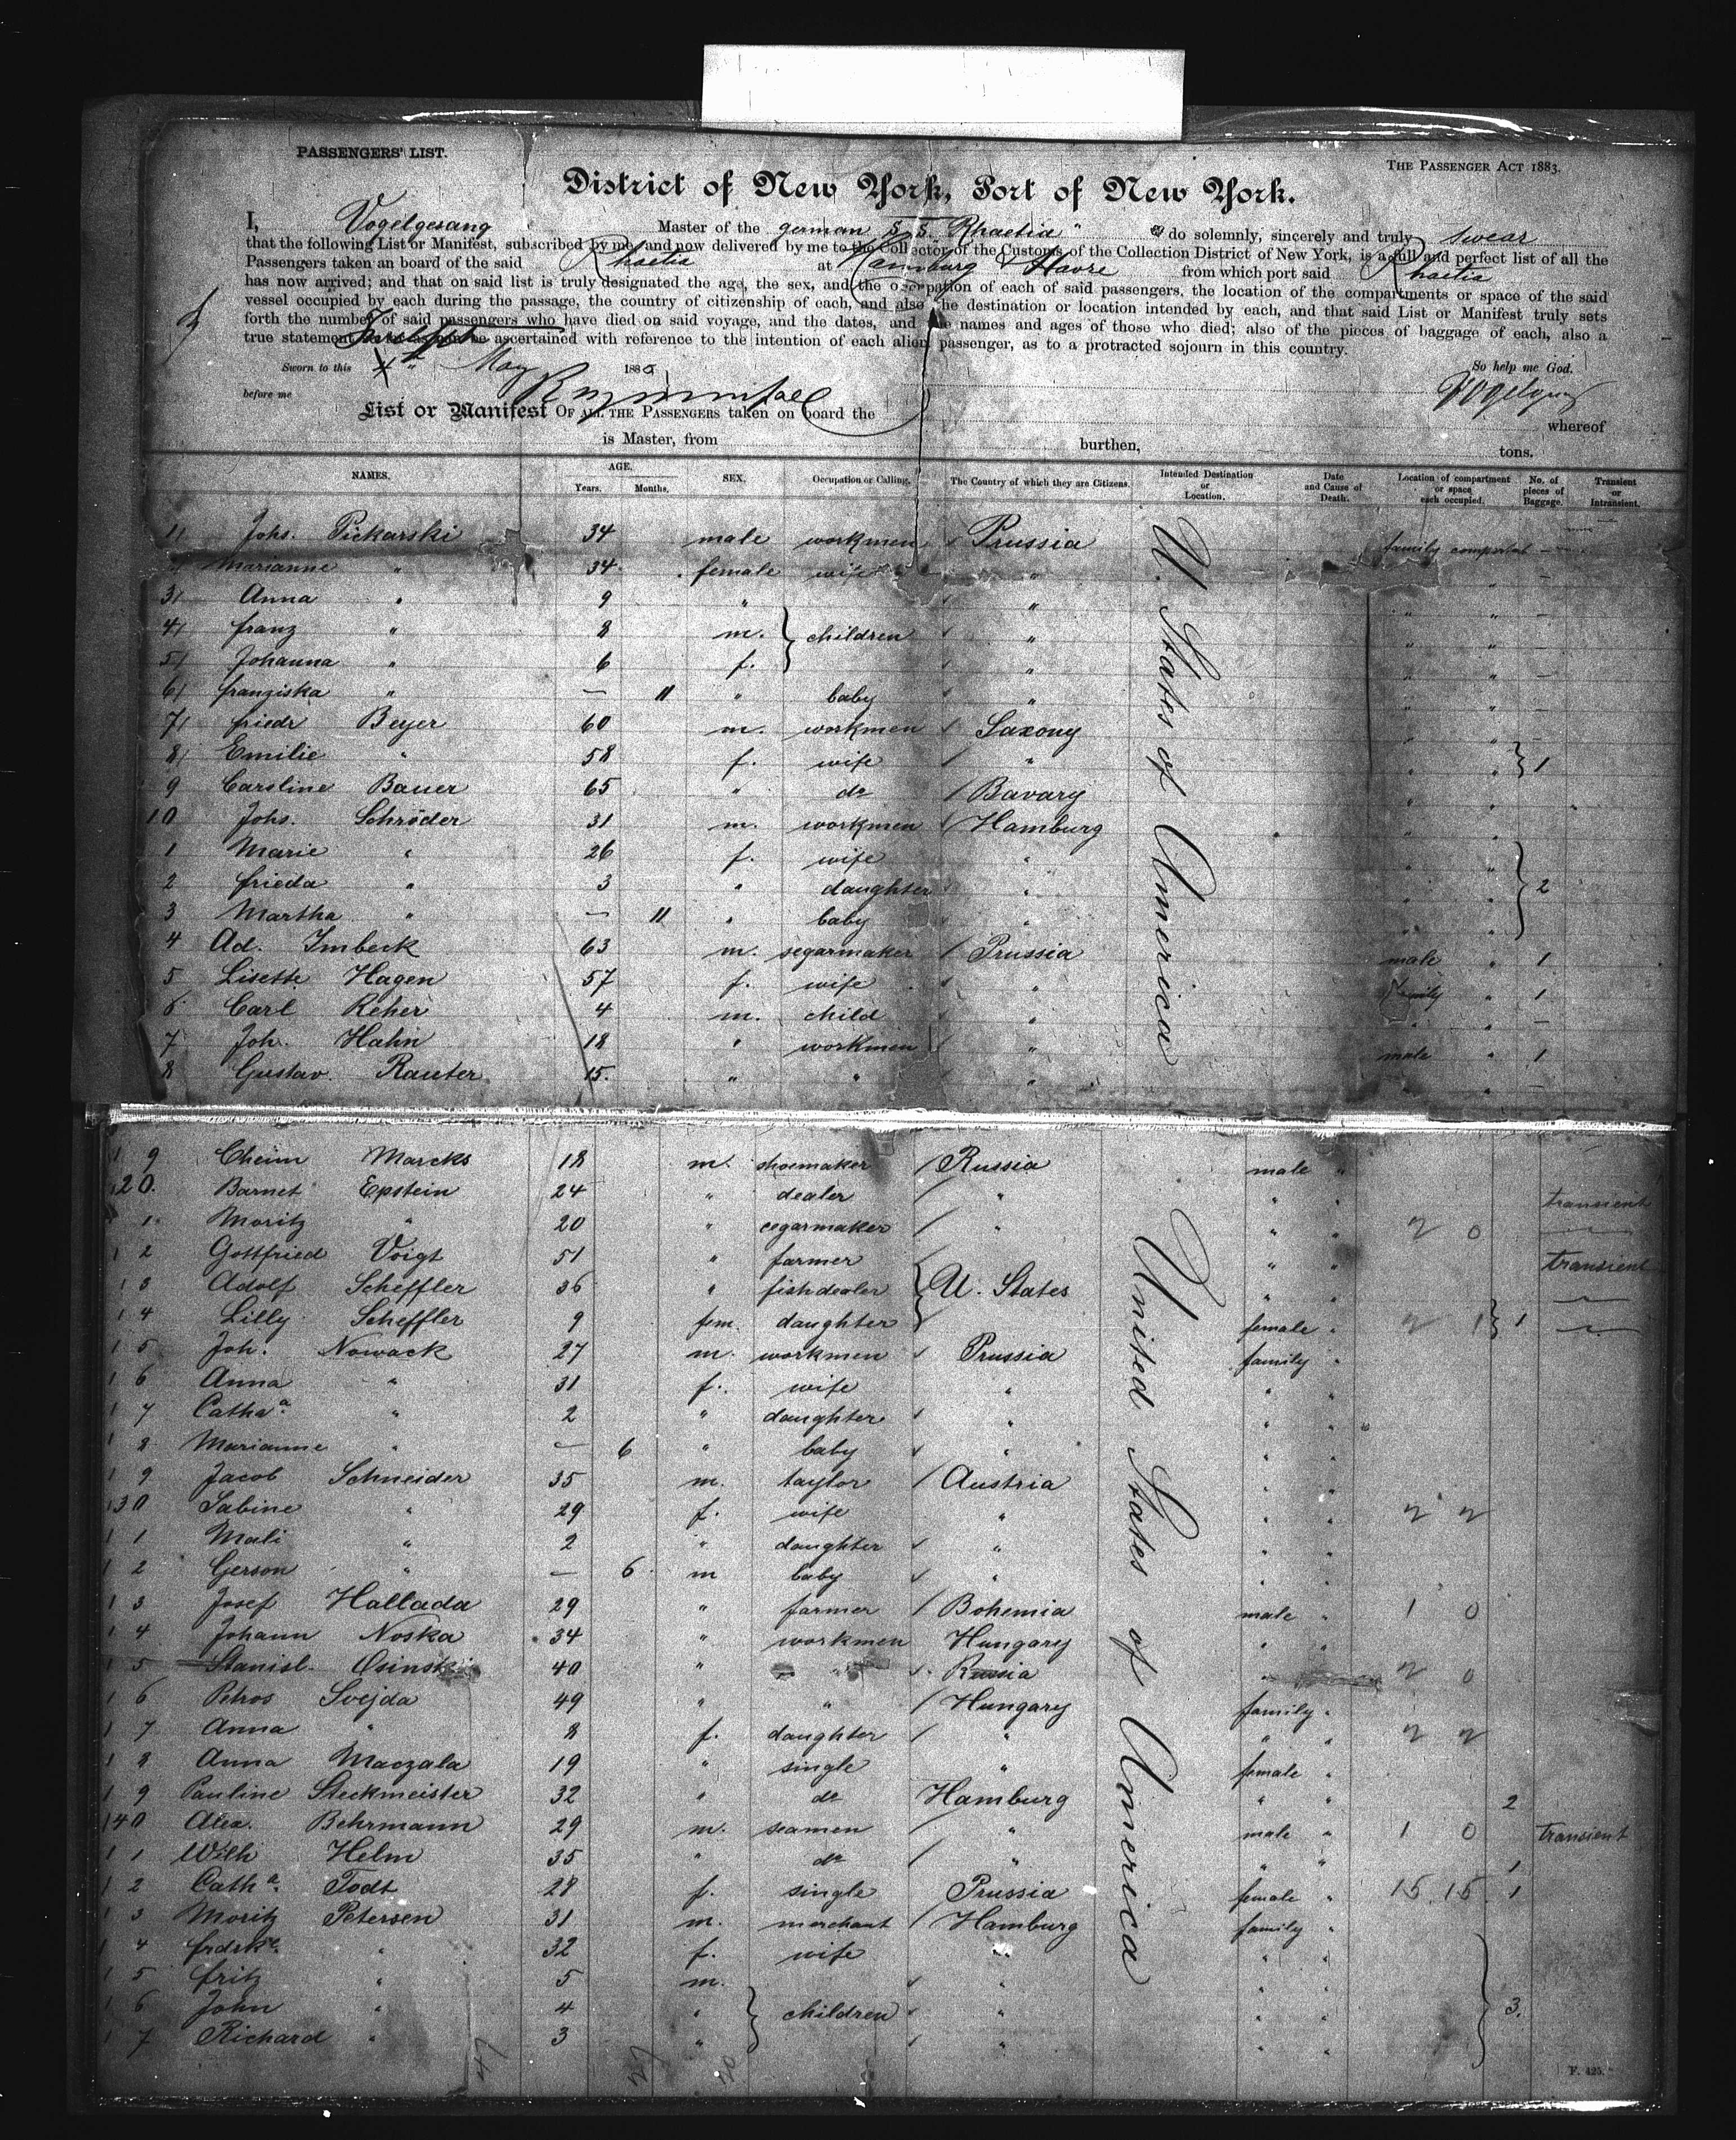 PASSENGERS' LIST.
THE PASSENGER ACT 1883.
District of New York, Port of New York.
I, Vogelgesang Master of the german S.S. "Rhaetia" do solemnly, sincerely and truly swear
that the following List or Manifest, subscribed by me, and now delivered by me to the Collector of the Customs of the Collection District of New York, is a full and perfect list of all the
Passengers taken an board of the said Rhaetia at Hamburg & Havre from which port said Rhaetia
has now arrived; and that on said list is truly designated the age, the sex, and the occupation of each of said passengers, the location of the compartments or space of the said
vessel occupied by each during the passage, the country of citizenship of each, and also the destination or location intended by each, and that said List or Manifest truly sets
forth the number of said passengers who have died on said voyage, and the dates, and the names and ages of those who died; also of the pieces of baggage of each, also a
true statement so far as can be ascertained with reference to the intention of each alien passenger, as to a protracted sojourn in this country.
Sworn to this May 188
So help me God.
before me
Vogelgesang
List or Manifest OF ALL THE PASSENGERS taken on board the whereof
is Master, from burthen, tons.
NAMES. AGE. Years. Months. SEX. Occupation or Calling. The Country of which they are Citizens. Intended Destination or Location. Date and Cause of Death. Location of compartment or space each occupied. No. of pieces of Baggage. Transient or Intransient.
1 Johs. Pickarski 34 male workmen Prussia family compartat —
" Marianne " 34 female wife " —
3 Anna " 9 " " " " —
4 franz " 8 m. children " " " —
5 Johanna " 6 f. " " " —
6 franziska " — 11 " baby " " " —
7 friedr Beyer 60 m. workmen Saxony " " —
8 Emilie " 58 f. wife " " " 1
9 Caroline Bauer 65 " do Bavary " "
10 Johs. Schröder 31 m. workmen Hamburg " "
1 Marie " 26 f. wife " " "
2 frieda " 3 " daughter " " " 2
3 Martha " — 11 " baby " " "
4 Ad. Imbeck 63 m. segarmaker Prussia male " 1
5 Lisette Hagen 57 f. wife " family " 1
6 Carl Reher 4 m. child " " " —
7 Joh. Hahn 18 " workmen " male " 1
8 Gustav. Rauter 15. " " " " —
U. States of America
1 9 Cheim Marcks 18 m. shoemaker Russia male "
120. Barnet Epstein 24 " dealer " " " transient
1. Moritz " 20 " cegarmaker " " " 2 0
1 2 Gottfried Voigt 51 " farmer " " transient
1 3 Adolf Scheffler 36 " fishdealer U. States " "
1 4 Lilly Scheffler 9 fem. daughter female " 2 1 1
1 5 Joh. Nowack 27 m. workmen Prussia family "
1 6 Anna " 31 f. wife " " "
1 7 Cathaa. " 2 " daughter " " "
1 8 Marianne " — 6 " baby " " "
1 9 Jacob Schneider 35 m. taylor Austria " "
130 Sabine " 29 f. wife " " " 2 2
1 1 Mali " 2 " daughter " " "
1 2 Gerson " — 6 m baby " " "
1 3 Josef Hallada 29 " farmer Bohemia male " 1 0
1 4 Johann Noska 34 " workmen Hungary " "
1 5 Stanisl. Osinski 40 " " Russia " 2 0
1 6 Petros Svejda 49 " " Hungary family "
1 7 Anna " 8 f. daughter " " " 2 2
1 8 Anna Maczala 19 " single " female "
1 9 Pauline Steckmeister 32 " do Hamburg " " 2
140 Alex. Behrmann 29 m. seamen " male " 1 0 transient
1 1 Wilh Helm 35 " do " " " 1
1 2 Catha. Todt 28 f. single Prussia female " 15 15 1
1 3 Moritz Petersen 31 m. merchant Hamburg family "
1 4 frdrke. " 32 f. wife " " "
1 5 fritz " 5 m. " " "
1 6 John " 4 " children " " " 3.
1 7 Richard " 3 " " " "
United States of America
F. 425.